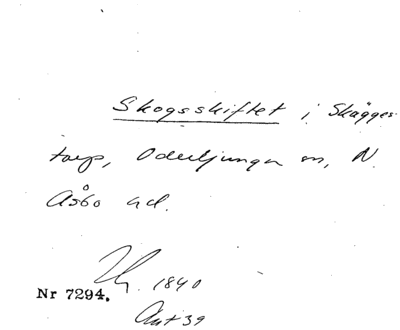 Skogsskiftet i Skägges-
torp, Oderljunga sn, N.
Åsbo hd.
1840
Nr 7294.
Ant 39